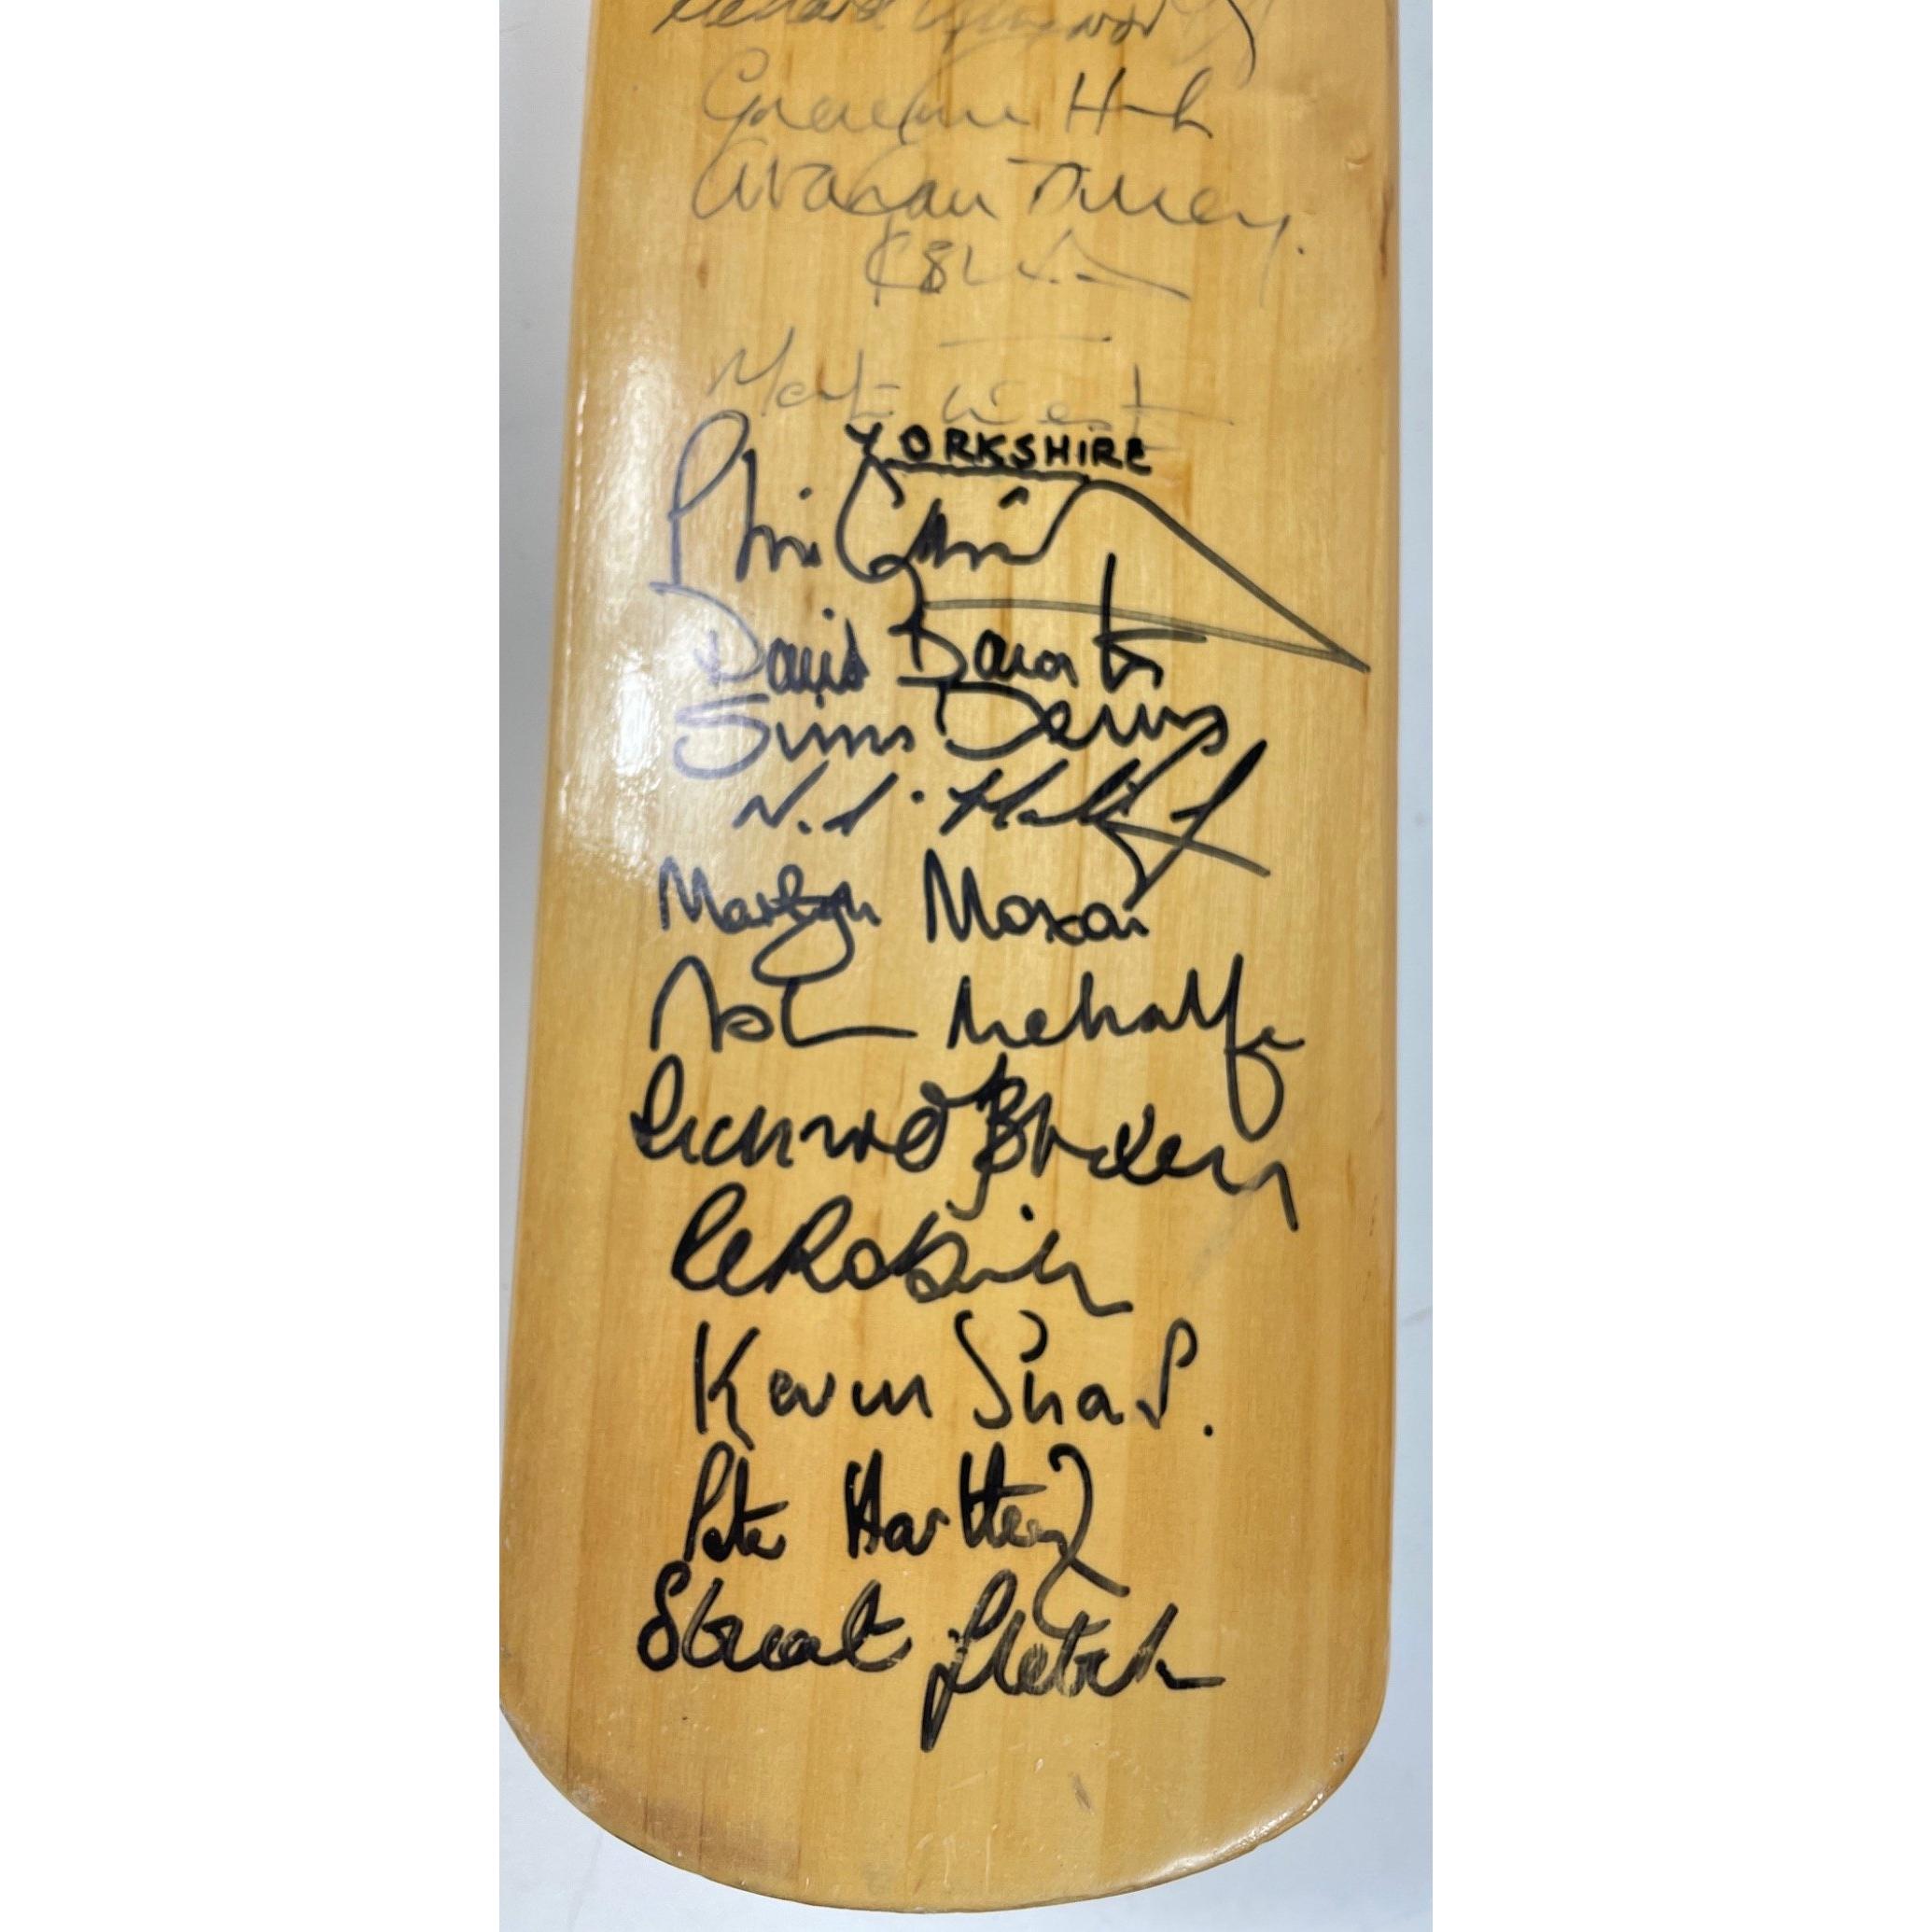 Richard Illingworth
Graeme Hick
Graham Dilley.
Martin West
YORKSHIRE
Phil Carrick
David Bairstow
Simon Dennis
Martyn Moxon
Ashley Metcalfe
Richard Blakey
P E Robinson
Kevin Sharp.
Peter Hartley
Stuart Fletcher